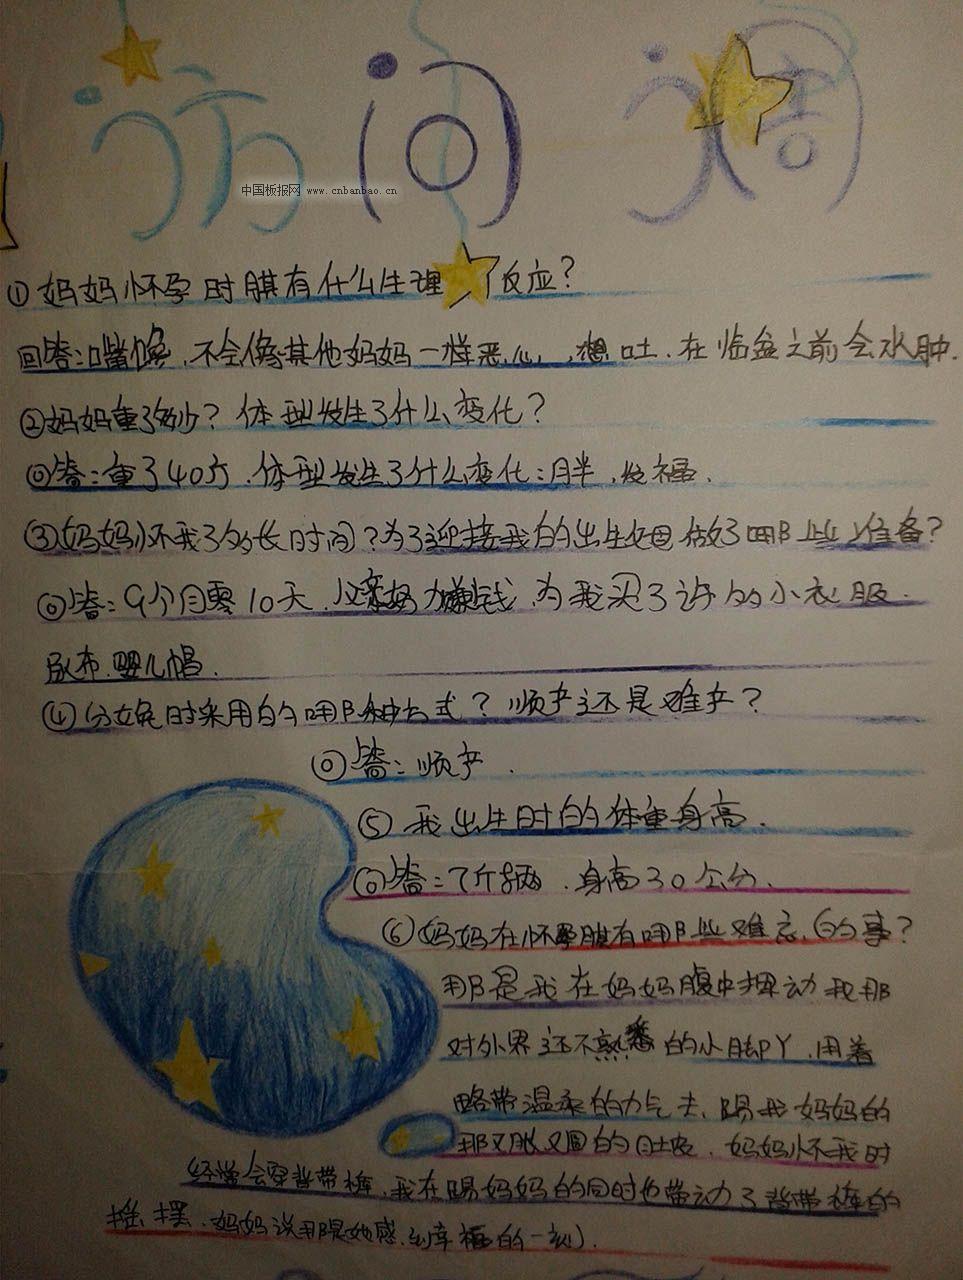 访问调
中国板报网 www.cnbanbao.cn
①妈妈怀孕时期有什么生理反应?
回答:嘴馋,不会像其他妈妈一样恶心,想吐.在临盆之前会水肿.
②妈妈重了多少?体型发生了什么变化?
回答:重了40斤.体型发生了什么变化:胖,发福.
③妈妈怀我了多长时间?为了迎接我的出生她做了哪些准备?
回答:9个月零10天.父亲努力赚钱,为我买了许多小衣服.
尿布.婴儿帽.
④分娩时采用的哪种方式?顺产还是难产?
回答:顺产.
⑤我出生时的体重身高.
回答:7斤8两.身高30公分.
⑥妈妈在怀孕期有哪些难忘的事?
那是我在妈妈腹中挥动我那
对外界还不熟悉的小脚丫,用着
略带温柔的力气去,踢我妈妈的
那又胀又圆的肚皮.妈妈怀我时
经常会穿背带裤,我在踢妈妈的同时也带动了背带裤的
摇摆.妈妈说那是她感到幸福的一刻).